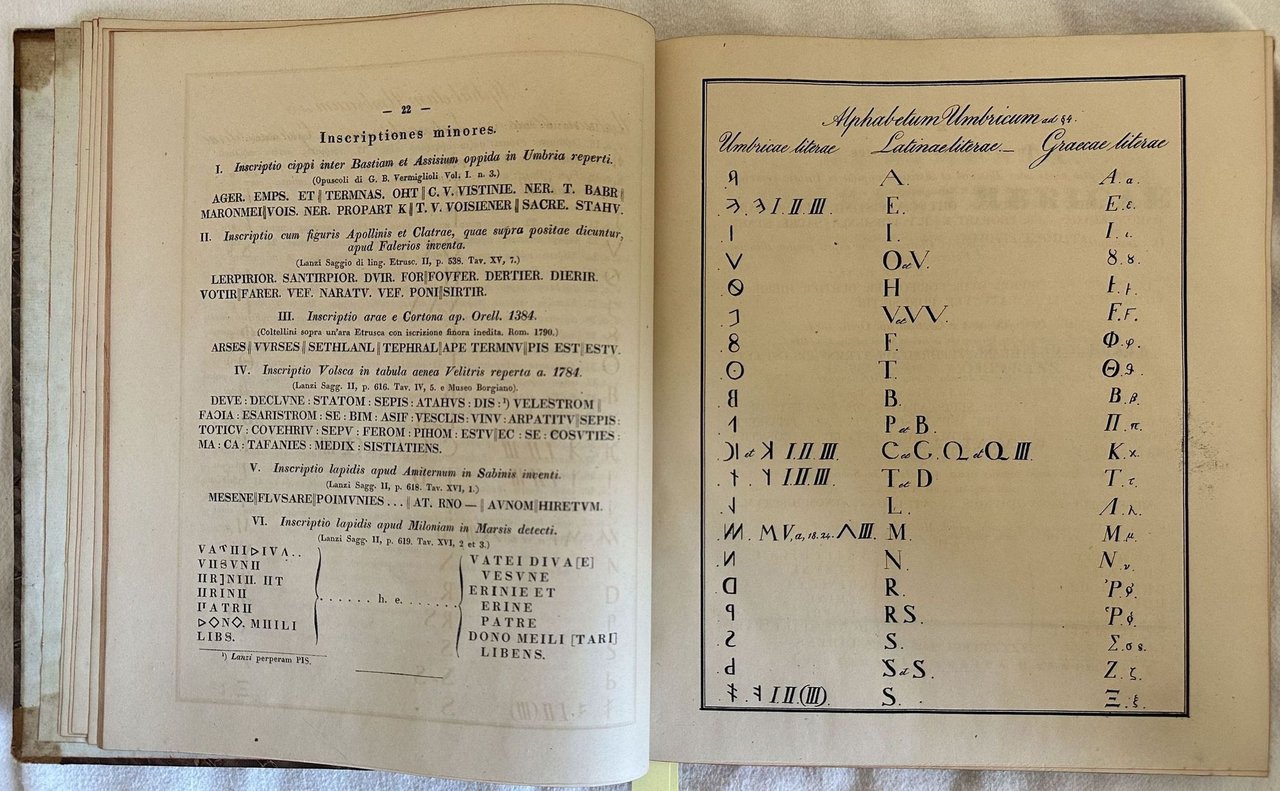 — 22 —
Inscriptiones minores.
I. Inscriptio cippi inter Bastiam et Assisium oppida in Umbria reperti.
(Opuscoli di G. B. Vermiglioli Vol. I. n. 3.)
AGER. EMPS. ET ‖ TERMNAS. OHT ‖ C. V. VISTINIE. NER. T. BABR ‖
MARONMEI ‖ VOIS. NER. PROPART K ‖ T. V. VOISIENER ‖ SACRE. STAHV.
II. Inscriptio cum figuris Apollinis et Clatrae, quae supra positae dicuntur,
apud Falerios inventa.
(Lanzi Saggio di ling. Etrusc. II, p. 538. Tav. XV, 7.)
LERPIRIOR. SANTIRPIOR. DVIR. FOR ‖ FOVFER. DERTIER. DIERIR.
VOTIR ‖ FARER. VEF. NARATV. VEF. PONI ‖ SIRTIR.
III. Inscriptio arae e Cortona ap. Orell. 1384.
(Coltellini sopra un'ara Etrusca con iscrizione finora inedita. Rom. 1790.)
ARSES ‖ VVRSES ‖ SETHLANL ‖ TEPHRAL ‖ APE TERMNV ‖ PIS EST ‖ ESTV.
IV. Inscriptio Volsca in tabula aenea Velitris reperta a. 1784.
(Lanzi Sagg. II, p. 616. Tav. IV, 5. e Museo Borgiano).
DEVE : DECLVNE : STATOM : SEPIS : ATAHVS : DIS : ¹) VELESTROM ‖
FAƆIA : ESARISTROM : SE : BIM : ASIF : VESCLIS : VINV : ARPATITV ‖ SEPIS :
TOTICV : COVEHRIV : SEPV : FEROM : PIHOM : ESTV ‖ EC : SE : COSVTIES :
MA : CA : TAFANIES : MEDIX : SISTIATIENS.
V. Inscriptio lapidis apud Amiternum in Sabinis inventi.
(Lanzi Sagg. II, p. 618. Tav. XVI, 1.)
MESENE ‖ FLVSARE ‖ POIMVNIES . . . ‖ AT. RNO — ‖ AVNOM ‖ HIRETVM.
VI. Inscriptio lapidis apud Miloniam in Marsis detecti.
(Lanzi Sagg. II, p. 619. Tav. XVI, 2 et 3.)
VATEI DIVA [E]
VIISVNII
VESVNE
ERINIE ET
IIRINII
. . . . . . h. e. . . . . . . .
ERINE
PATRE
MIIILI
DONO MEILI [TARI]
LIBS.
LIBENS.
¹) Lanzi perperam PIS.
Alphabetum Umbricum ad §4.
Umbricae literae Latinae literae. Graecae literae
𐌀 A. A. α.
𐌄 . 𐌄 I. II. III. E. E. ε.
𐌉 I. I. ι.
𐌖 O et V. 8. 8.
𐌈 H
V et VV. F. F.
𐌚 F. Φ. φ.
ʘ T. Θ. ϑ.
𐌁 B. B. β.
𐌐 P et B. Π. π.
𐌊 I. II. III. C et G. Q et Q III. K. ϰ
𐌕 . I. II. III. T et D T. τ.
𐌋 L. Λ. λ.
𐌌 . M V, a, 18. 24. Λ III. M. M. μ.
𐌍 N. N. ν.
𐌃 R. Ρ
𐌓 RS. Ρ
𐌔 S. Σ. σ ς.
S et S. Z. ζ.
I. II. (III). S. Ξ. ξ.